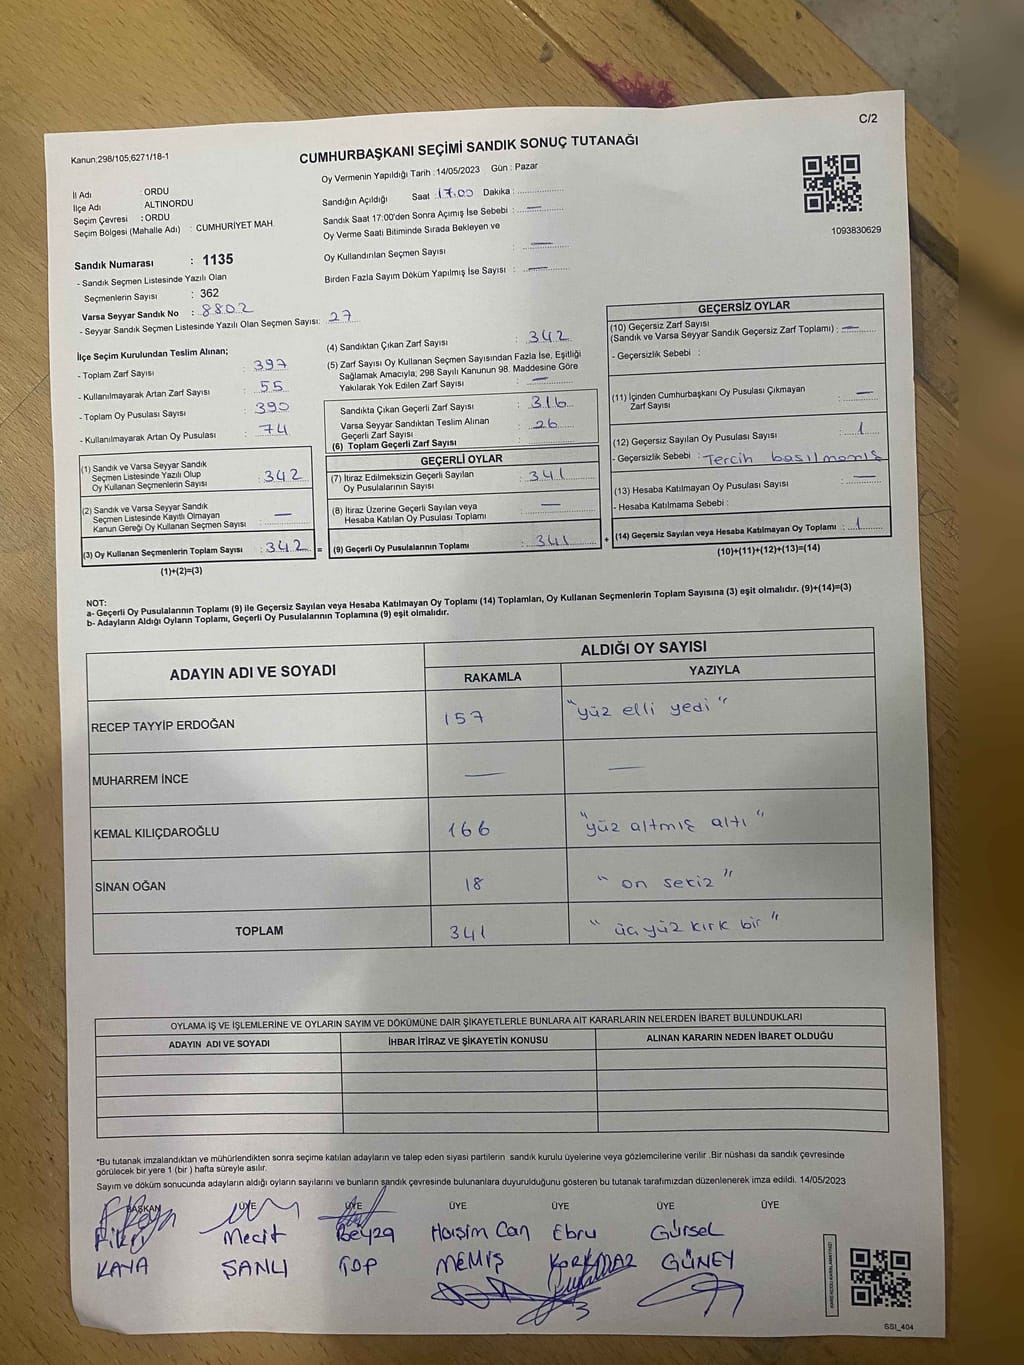 C/2
Kanun;298/105,6271/18-1
CUMHURBAŞKANI SEÇİMİ SANDIK SONUÇ TUTANAĞI
Oy Vermenin Yapıldığı Tarih : 14/05/2023 Gün : Pazar
İl Adı : ORDU
İlçe Adı : ALTINORDU
Seçim Çevresi : ORDU
Seçim Bölgesi (Mahalle Adı) : CUMHURİYET MAH.
Sandığın Açıldığı Saat : 17.00 Dakika :
Sandık Saat 17:00'den Sonra Açımış İse Sebebi : —
Oy Verme Saati Bitiminde Sırada Bekleyen ve
Oy Kullandırılan Seçmen Sayısı : —
Birden Fazla Sayım Döküm Yapılmış İse Sayısı : —
1093830629
Sandık Numarası : 1135
- Sandık Seçmen Listesinde Yazılı Olan
Seçmenlerin Sayısı : 362
Varsa Seyyar Sandık No : 8802
- Seyyar Sandık Seçmen Listesinde Yazılı Olan Seçmen Sayısı: 27
İlçe Seçim Kurulundan Teslim Alınan;
- Toplam Zarf Sayısı : 397
- Kullanılmayarak Artan Zarf Sayısı : 55
- Toplam Oy Pusulası Sayısı : 390
- Kullanılmayarak Artan Oy Pusulası : 74
(1) Sandık ve Varsa Seyyar Sandık
Seçmen Listesinde Yazılı Olup
Oy Kullanan Seçmenlerin Sayısı : 342
(2) Sandık ve Varsa Seyyar Sandık
Seçmen Listesinde Kayıtlı Olmayan
Kanun Gereği Oy Kullanan Seçmen Sayısı : —
(3) Oy Kullanan Seçmenlerin Toplam Sayısı : 342 =
(1)+(2)=(3)
(4) Sandıktan Çıkan Zarf Sayısı : 342
(5) Zarf Sayısı Oy Kullanan Seçmen Sayısından Fazla İse, Eşitliği
Sağlamak Amacıyla; 298 Sayılı Kanunun 98. Maddesine Göre
Yakılarak Yok Edilen Zarf Sayısı : —
Sandıkta Çıkan Geçerli Zarf Sayısı : 316
Varsa Seyyar Sandıktan Teslim Alınan
Geçerli Zarf Sayısı : 26
(6) Toplam Geçerli Zarf Sayısı :
GEÇERLİ OYLAR
(7) İtiraz Edilmeksizin Geçerli Sayılan
Oy Pusulalarının Sayısı : 341
(8) İtiraz Üzerine Geçerli Sayılan veya
Hesaba Katılan Oy Pusulası Toplamı : —
(9) Geçerli Oy Pusulalarının Toplamı : 341 +
GEÇERSİZ OYLAR
(10) Geçersiz Zarf Sayısı
(Sandık ve Varsa Seyyar Sandık Geçersiz Zarf Toplamı) : —
- Geçersizlik Sebebi :
(11) İçinden Cumhurbaşkanı Oy Pusulası Çıkmayan
Zarf Sayısı : —
(12) Geçersiz Sayılan Oy Pusulası Sayısı : 1
- Geçersizlik Sebebi : Tercih basılmamış
(13) Hesaba Katılmayan Oy Pusulası Sayısı : —
- Hesaba Katılmama Sebebi :
(14) Geçersiz Sayılan veya Hesaba Katılmayan Oy Toplamı : 1
(10)+(11)+(12)+(13)=(14)
NOT:
a- Geçerli Oy Pusulalarının Toplamı (9) ile Geçersiz Sayılan veya Hesaba Katılmayan Oy Toplamı (14) Toplamları, Oy Kullanan Seçmenlerin Toplam Sayısına (3) eşit olmalıdır. (9)+(14)=(3)
b- Adayların Aldığı Oyların Toplamı, Geçerli Oy Pusulalarının Toplamına (9) eşit olmalıdır.
ADAYIN ADI VE SOYADI ALDIĞI OY SAYISI
RAKAMLA YAZIYLA
RECEP TAYYİP ERDOĞAN 157 "yüz elli yedi"
MUHARREM İNCE — —
KEMAL KILIÇDAROĞLU 166 "yüz altmış altı"
SİNAN OĞAN 18 "on sekiz"
TOPLAM 341 "üçyüz kırk bir"
OYLAMA İŞ VE İŞLEMLERİNE VE OYLARIN SAYIM VE DÖKÜMÜNE DAİR ŞİKAYETLERLE BUNLARA AİT KARARLARIN NELERDEN İBARET BULUNDUKLARI
ADAYIN ADI VE SOYADI İHBAR İTİRAZ VE ŞİKAYETİN KONUSU ALINAN KARARIN NEDEN İBARET OLDUĞU
*Bu tutanak imzalandıktan ve mühürlendikten sonra seçime katılan adayların ve talep eden siyasi partilerin sandık kurulu üyelerine veya gözlemcilerine verilir .Bir nüshası da sandık çevresinde
görülecek bir yere 1 (bir ) hafta süreyle asılır.
Sayım ve döküm sonucunda adayların aldığı oyların sayılarını ve bunların sandık çevresinde bulunanlara duyurulduğunu gösteren bu tutanak tarafımızdan düzenlenerek imza edildi. 14/05/2023
BAŞKAN ÜYE ÜYE ÜYE ÜYE ÜYE ÜYE
Mecit Beyza Haşim Can Ebru Gürsel
KAYA ŞANLI TOP MEMİŞ KORKMAZ GÜNEY
SSI_404